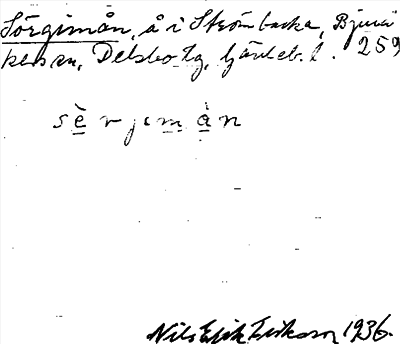 Sörgimån, å i Strömbacka, Bjurå
kers sn, Delsbo tg, Gävleb. l. 259
sè r jım å̀ n
Nils Erik Eriksson 1936.